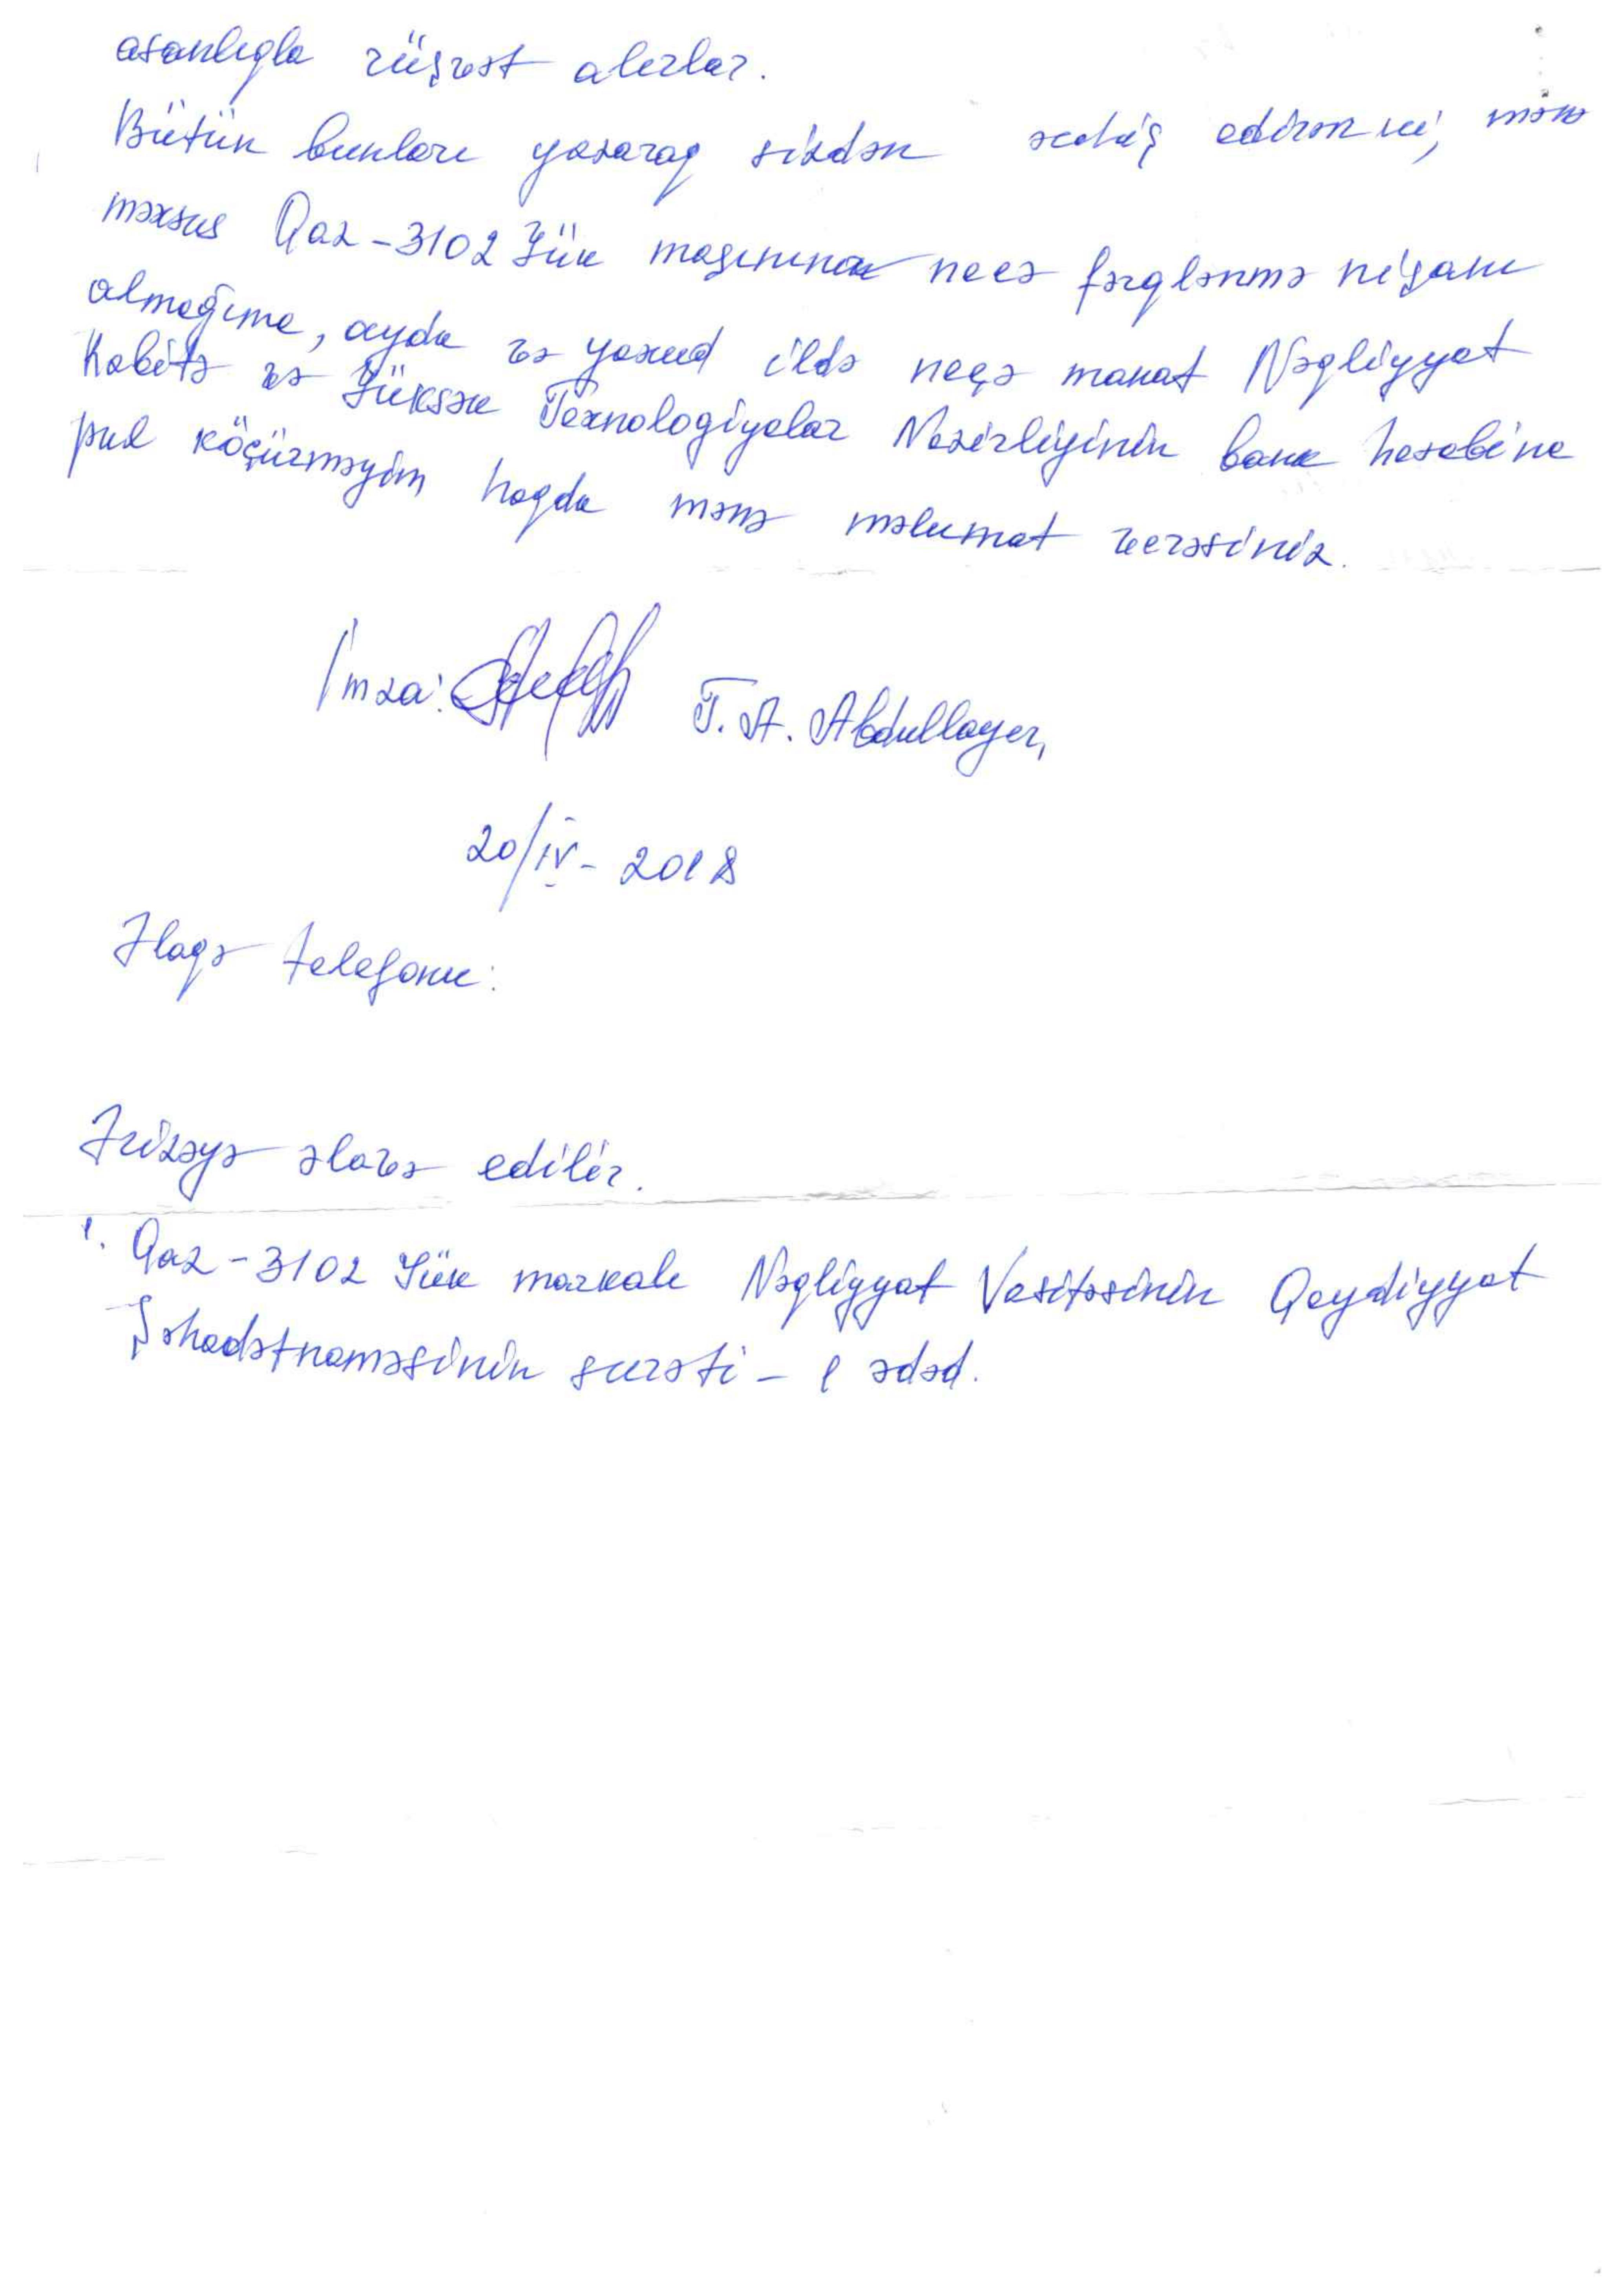 asanlıqla rüşvət alırlar.
Bütün bunları yazaraq sizdən xahiş edirəm ki, mənə
məxsus Qaz-3102 Yük maşınına necə fərqlənmə nişanı
almağıma, ayda və yaxud ildə neçə manat Nəqliyyat
Rabitə və Yüksək Texnologiyalar Nazirliyinin bank hesabına
pul köçürməyim haqda mənə məlumat verəsiniz.
İmza: T. A. Abdullayev,
20/IV-2018
Əlaqə telefonu:
Ərizəyə əlavə edilir.
1. Qaz-3102 Yük markalı Nəqliyyat Vasitəsinin Qeydiyyat
Şəhadətnaməsinin surəti - 1 ədəd.